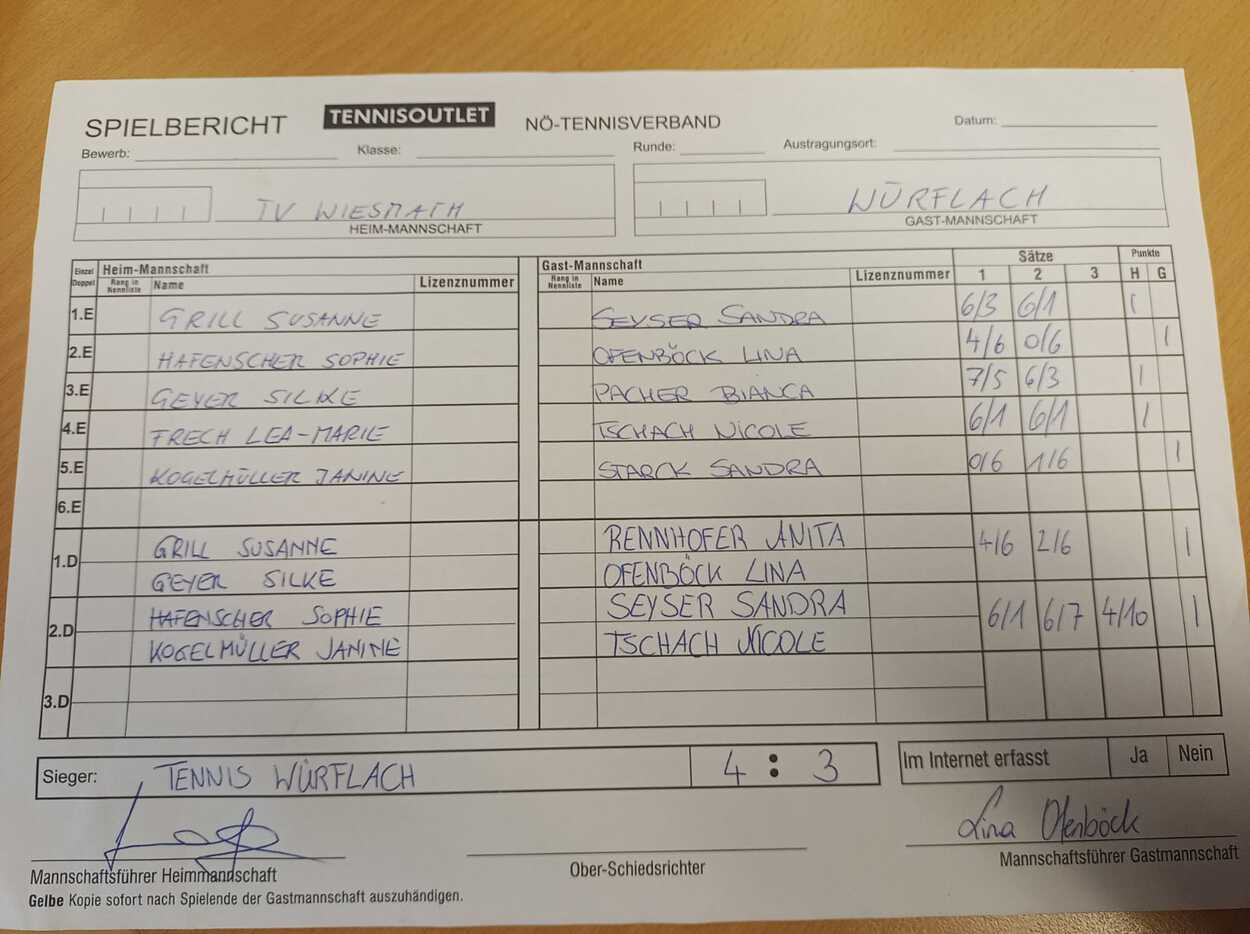 SPIELBERICHT TENNISOUTLET NÖ-TENNISVERBAND Datum:
Bewerb: Klasse: Runde: Austragungsort:
TV WIESMATH WÜRFLACH
HEIM-MANNSCHAFT GAST-MANNSCHAFT
Einzel Doppel Heim-Mannschaft Gast-Mannschaft Sätze Punkte
Rang in Nennliste Name Lizenznummer Rang in Nennliste Name Lizenznummer 1 2 3 H G
1.E GRILL SUSANNE SEYSER SANDRA 6/3 6/1 |
2.E HAFENSCHER SOPHIE OFENBÖCK LINA 4/6 0/6 |
3.E GEYER SILKE PACHER BIANCA 7/5 6/3 |
4.E FRECH LEA-MARIE TSCHACH NICOLE 6/1 6/1 |
5.E KOGELMÜLLER JANINE STARCK SANDRA 0/6 1/6 |
6.E
1.D GRILL SUSANNE RENNHOFER ANITA 4/6 2/6 |
GEYER SILKE OFENBÖCK LINA
2.D HAFENSCHER SOPHIE SEYSER SANDRA 6/1 6/7 4/10 |
KOGELMÜLLER JANINE TSCHACH NICOLE
3.D
Sieger: TENNIS WÜRFLACH 4 : 3 Im Internet erfasst Ja Nein
Lina Ofenböck
Mannschaftsführer Heimmannschaft Ober-Schiedsrichter Mannschaftsführer Gastmannschaft
Gelbe Kopie sofort nach Spielende der Gastmannschaft auszuhändigen.